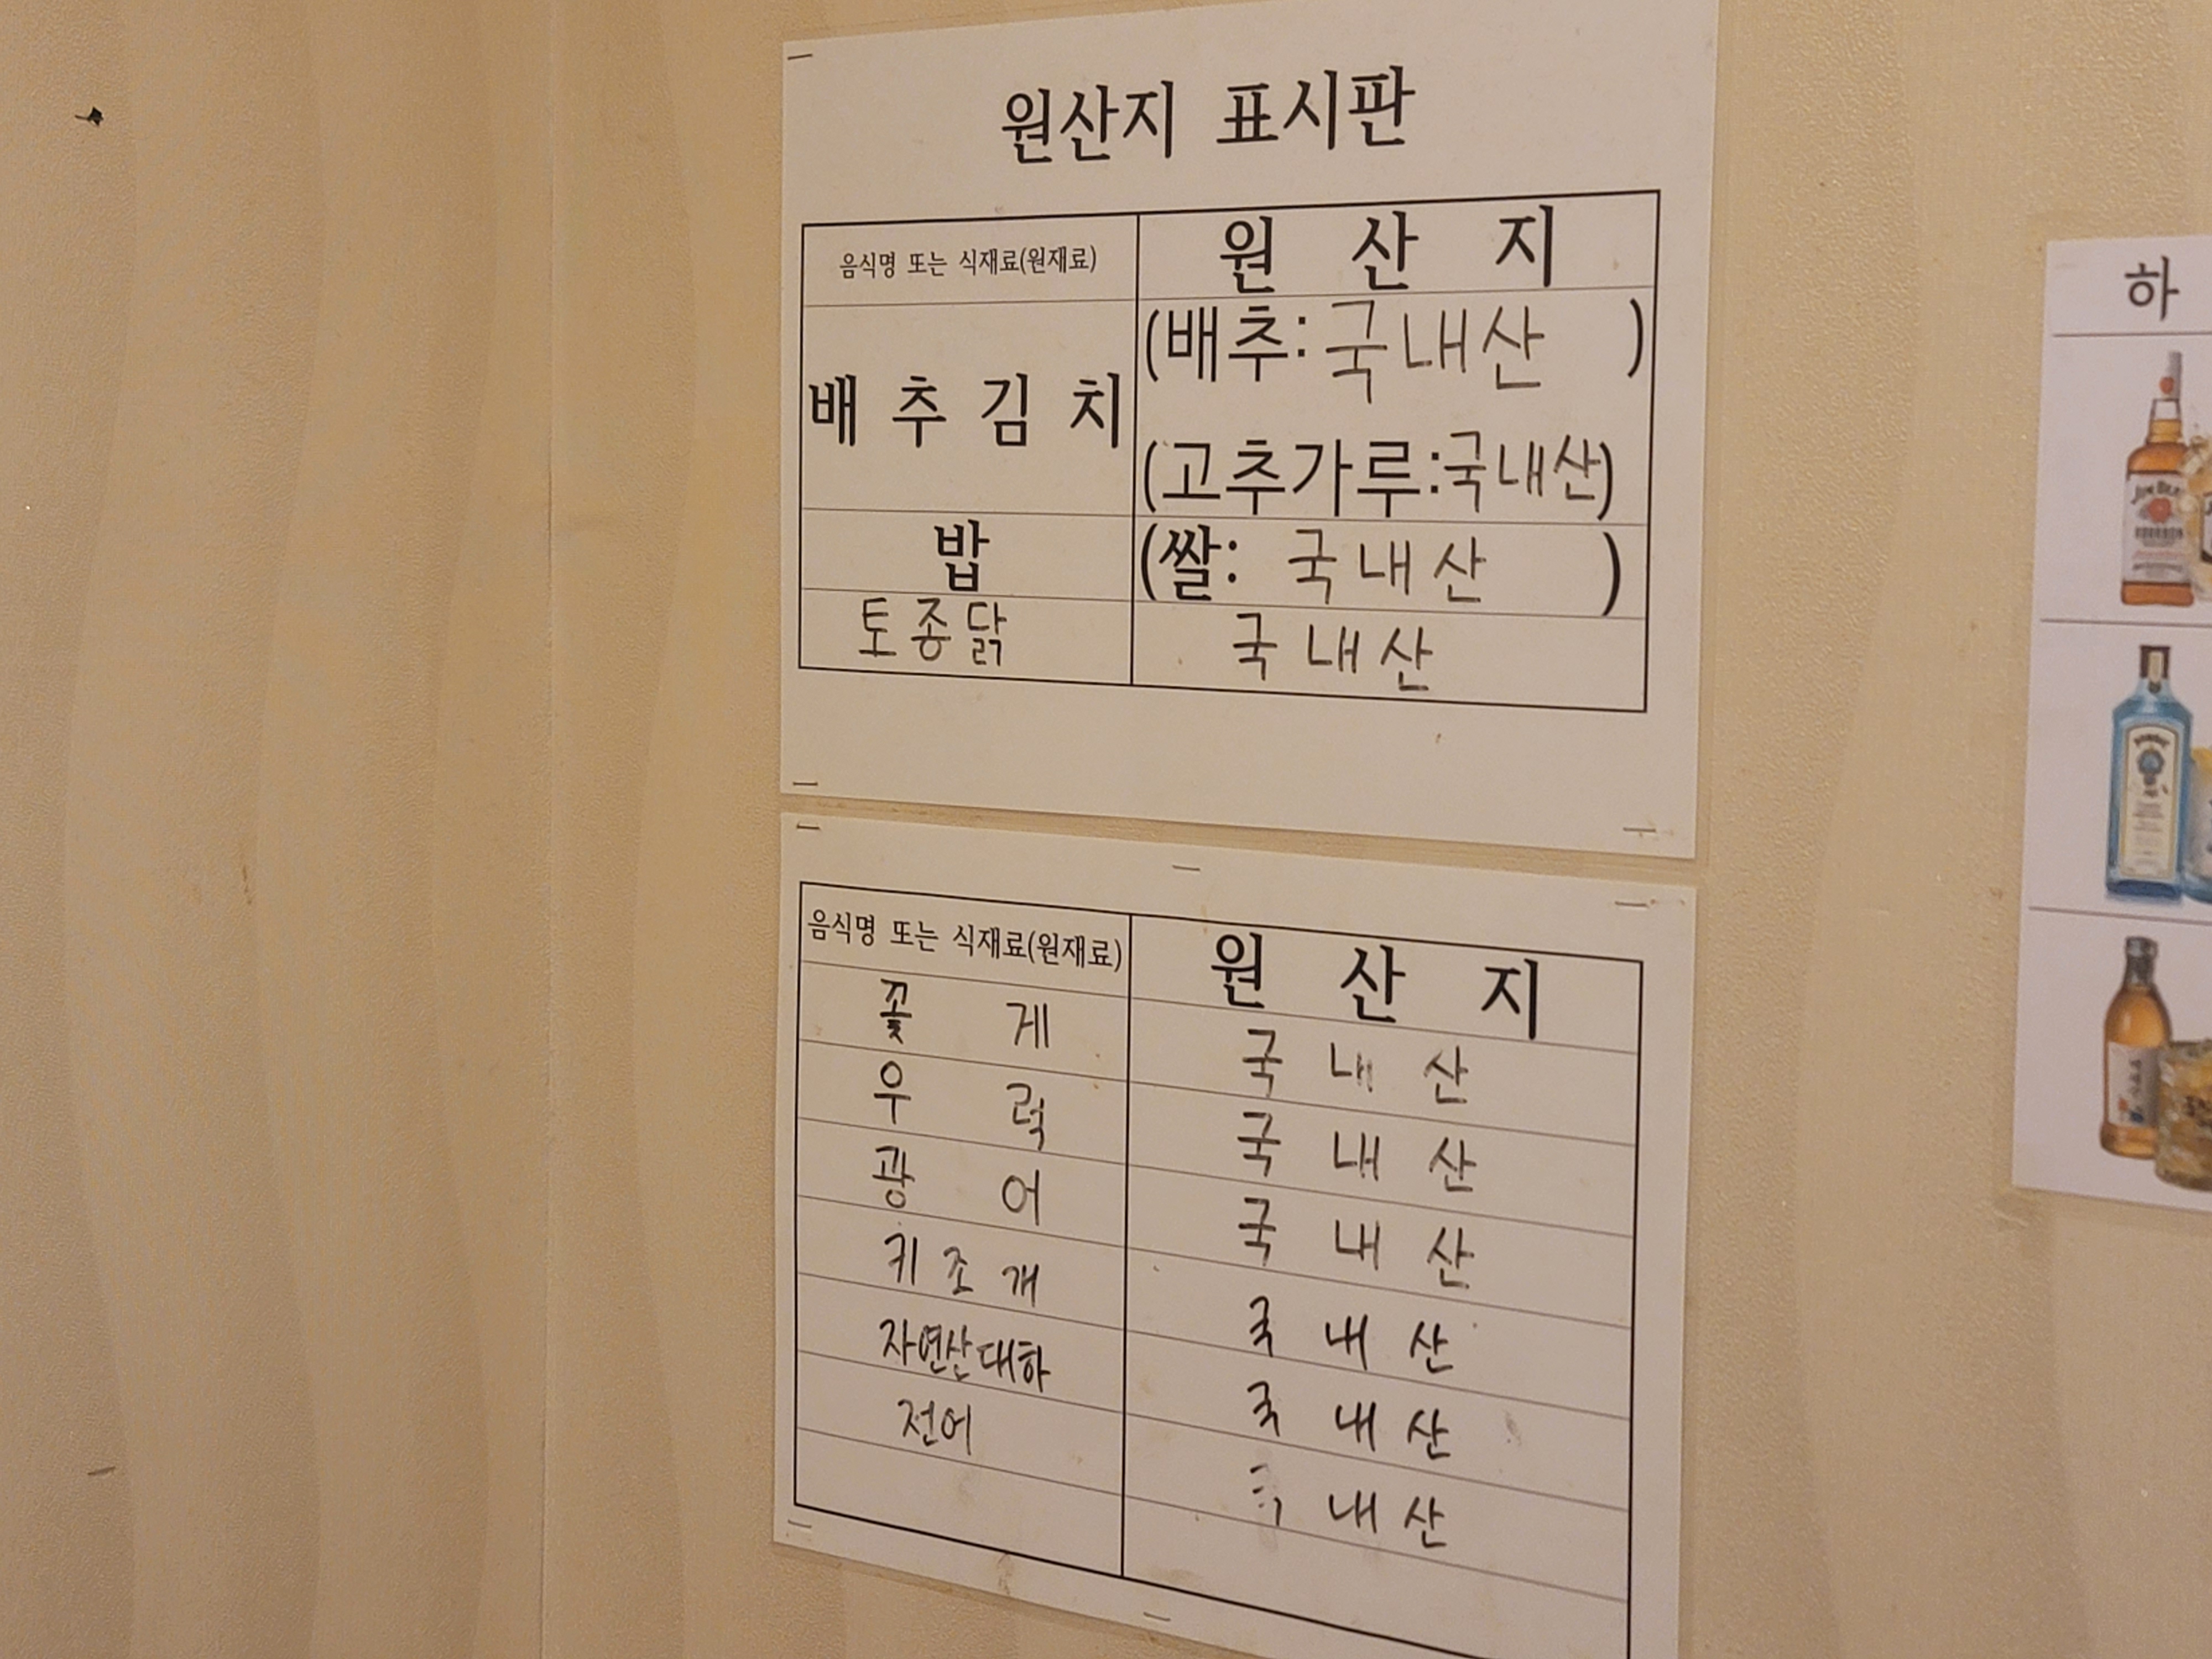 원산지 표시판
음식명 또는 식재료(원재료) 원 산 지
배 추 김 치 (배추: 국내산 )
(고추가루:국내산)
밥 (쌀: 국내산 )
토종닭 국내산
음식명 또는 식재료(원재료) 원 산 지
꽃 게 국 내 산
우 럭 국 내 산
광 어 국 내 산
키 조 개 국 내 산
자연산대하 국 내 산
전어 국 내 산
하
JIM BEAM
BOURBON
BOMBAY